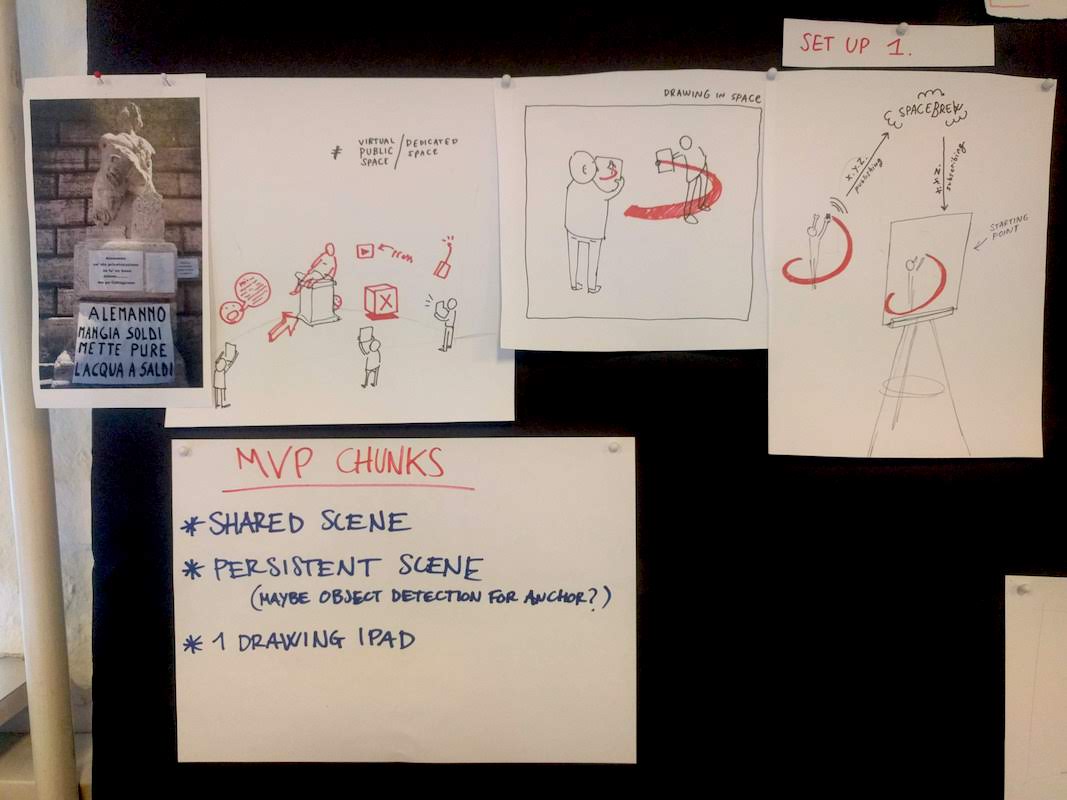 ALEMANNO
MANGIA SOLDI
METTE PURE
L'ACQUA A SALDI
* VIRTUAL PUBLIC SPACE / DEDICATED SPACE
X
DRAWING IN SPACE
SET UP 1.
SPACEBREW
X.Y.Z.
publishing
subscribing
STARTING
POINT
MVP CHUNKS
* SHARED SCENE
* PERSISTENT SCENE
(MAYBE OBJECT DETECTION FOR ANCHOR?)
* 1 DRAWING IPAD